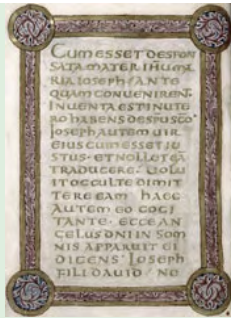 CUM ESSET DESPON
SATA MATER IHU MA
RIA IOSEPH ANTE
QUAM CONUENIRENT
INUENTA EST IN UTE
RO HABENS DE SPU SCO
IOSEPH AUTEM UIR
EIUS CUM ESSET IU
STUS · ET NOLLET EA
TRADUCERE · UOLU
IT OCCULTE DIMIT
TERE EAM HAEC
AUTEM EO COGI
TANTE · ECCE AN
GELUS DNI IN SOM
NIS APPARUIT EI
DICENS · IOSEPH
FILI DAUID NE